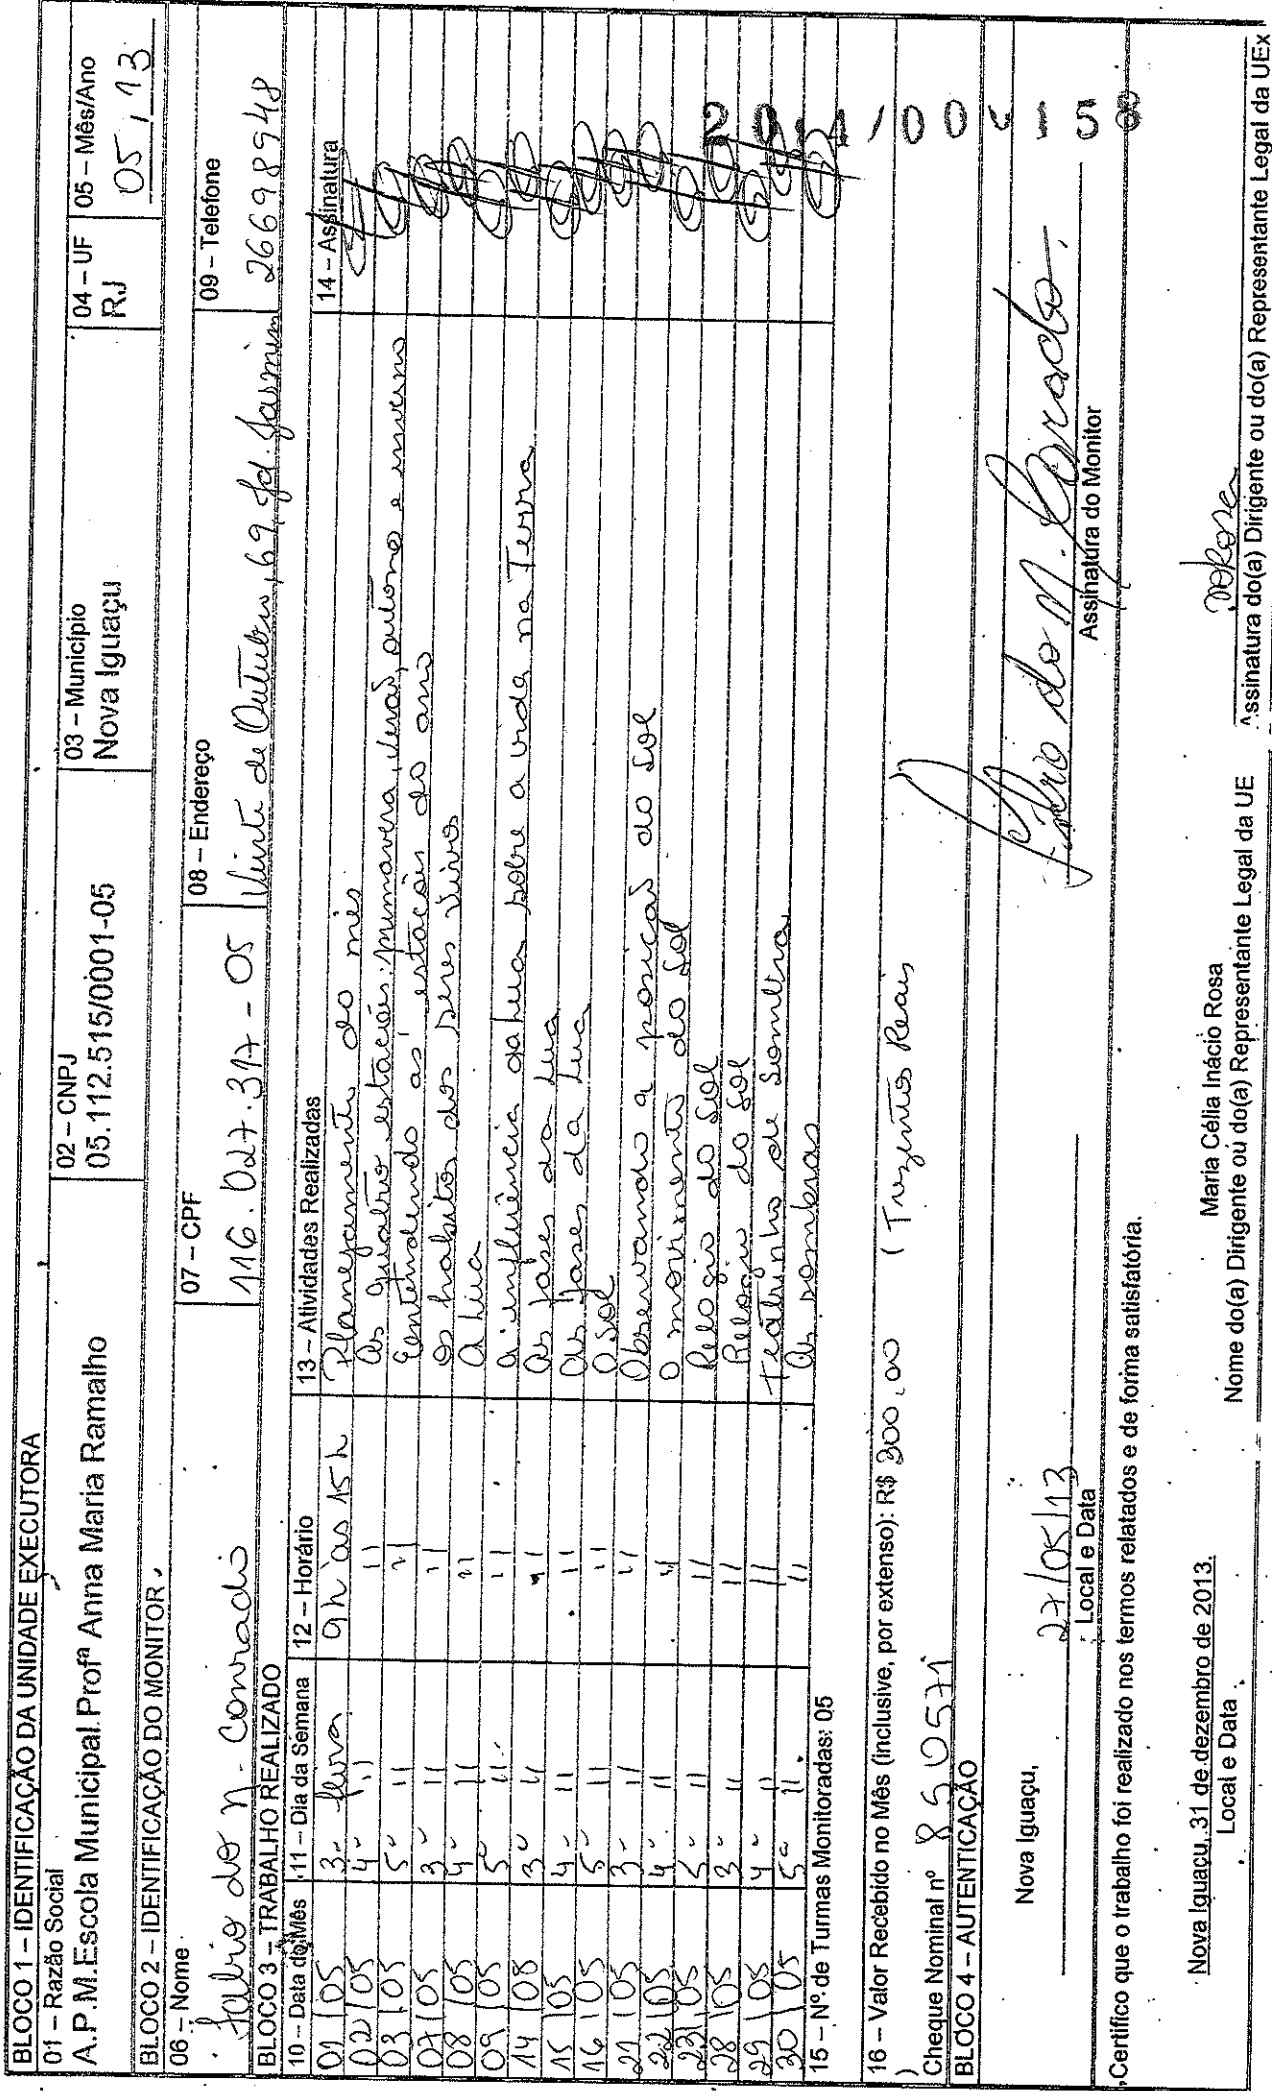 BLOCO 1 – IDENTIFICAÇÃO DA UNIDADE EXECUTORA
01 – Razão Social
A.P.M.Escola Municipal Profª Anna Maria Ramalho
02 – CNPJ
05.112.515/0001-05
03 – Município
Nova Iguaçu
04 – UF
RJ
05 – Mês/Ano
05,13
BLOCO 2 – IDENTIFICAÇÃO DO MONITOR
06 – Nome
Fabio do N. Conrado
07 – CPF
116.027.317-05
08 – Endereço
Vinte de Outubro, 69, Jd. Jasmim
09 – Telefone
26698948
BLOCO 3 – TRABALHO REALIZADO
10 – Data do Mês 11 – Dia da Semana 12 – Horário 13 – Atividades Realizadas 14 – Assinatura
01/05 3ª feira 9h às 15h Planejamento do mês
02/05 4ª " " As quatro estações: primavera, verão, outono e inverno
03/05 5ª " " Entendendo as estações do ano
07/05 3ª " " Os habitos dos seres vivos
08/05 4ª " " A Lua
09/05 5ª " " A influência da Lua sobre a vida na Terra
14/08 3ª " " As fases da Lua
15/05 4ª " " As fases da Lua
16/05 5ª " " O Sol
21/05 3ª " " Observando a posição do Sol
22/05 4ª " " O movimento do Sol
23/05 5ª " " Relogio do Sol
28/05 3ª " " Relogio do Sol
29/05 4ª " " Teatrinho de Sombra
30/05 5ª " " As sombras
15 – Nº.de Turmas Monitoradas: 05
16 – Valor Recebido no Mês (inclusive, por extenso): R$ 300,00 (Trezentos Reais
)
Cheque Nominal nº 850571
BLOCO 4 – AUTENTICAÇÃO
Nova Iguaçu, 27/05/13
Local e Data
Fabio do N. Conrado.
Assinatura do Monitor
Certifico que o trabalho foi realizado nos termos relatados e de forma satisfatória.
Nova Iguaçu, 31 de dezembro de 2013.
Local e Data
Maria Célia Inácio Rosa
Nome do(a) Dirigente ou do(a) Representante Legal da UE
Assinatura do(a) Dirigente ou do(a) Representante Legal da UEx